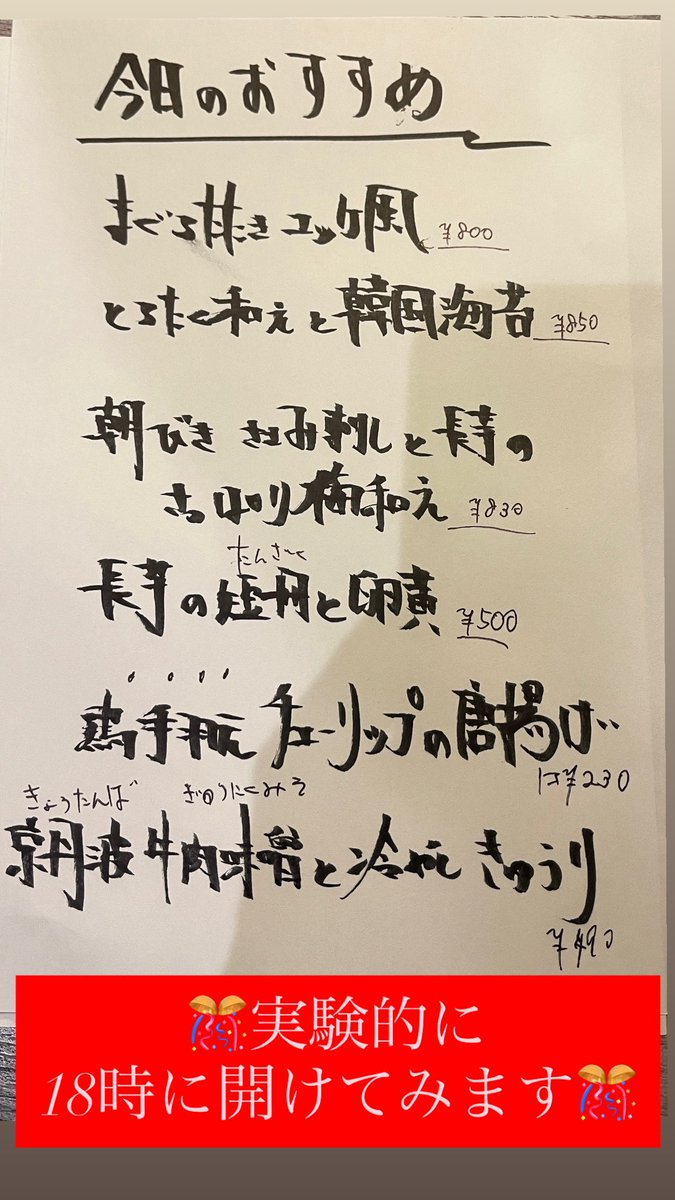 今日のおすすめ
まぐろ叩き ユッケ風 ¥800
とろたく和えと韓国海苔 ¥850
朝びき ささみ刺しと長芋の
さっぱり梅和え ¥830
たんざく
長芋の短冊と卵黄 ¥500
鶏手羽元 チューリップの唐揚げ
1コ¥230
きょうたんば ぎゅうにくみそ
京丹波牛肉味噌と冷やし きゅうり
¥490
🎊実験的に
18時に開けてみます🎊